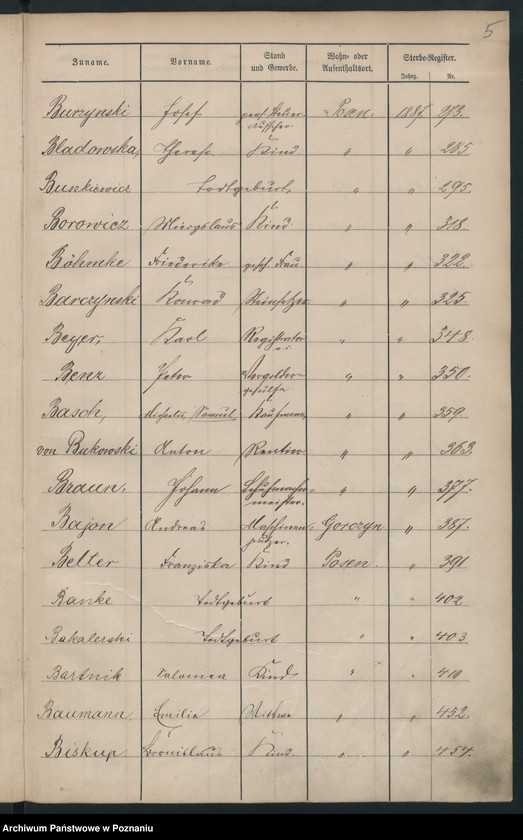 5
Zuname. Vorname. Stand und Gewerbe. Wohn- oder Aufenthaltsort. Sterbe-Register.
Jahrg. Nr.
Burzynski Josef pens. Steuer Aufseher Posen. 1887. 273.
Bladowska, Theresa Kind " " 285
Buszkiewicz Todtgeburt " " 295.
Borowicz Kind " " 318.
Böhmke Friederike gesch. Frau. " " 322.
Barczynski Konrad Steinsetzer " " 325.
Beyer, Karl Registrator " " 348.
Benz Peter Vergolder- gehülfe " " 350.
Basch, Michaelis, Samuel Kaufmann, " " 359.
von Bukowski Anton Rentier " " 363.
Braun, Johann Schuhmacher- meister. " " 377.
Bajon Andreas Maschinen putzer. Gorczyn " 387.
Belter Franziska Kind Posen. " 391
Ranke Todtgeburt " " 402
Bakalerski Todtgeburt " " 403
Bartnik Salomea Kind " " 410
Baumann, Emilie Wittwe " " 452
Biskup, Bronislaus Kind " " 454.
Archiwum Państwowe w Poznaniu